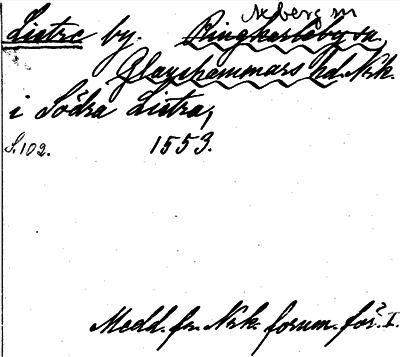 Axberg sn
Listre by. Ringkarleby sn.
Glanshammars hd. Nrk.
i Södra Listra,
S. 102. 1553.
Medd. fr. Nrk. fornm. för. I.